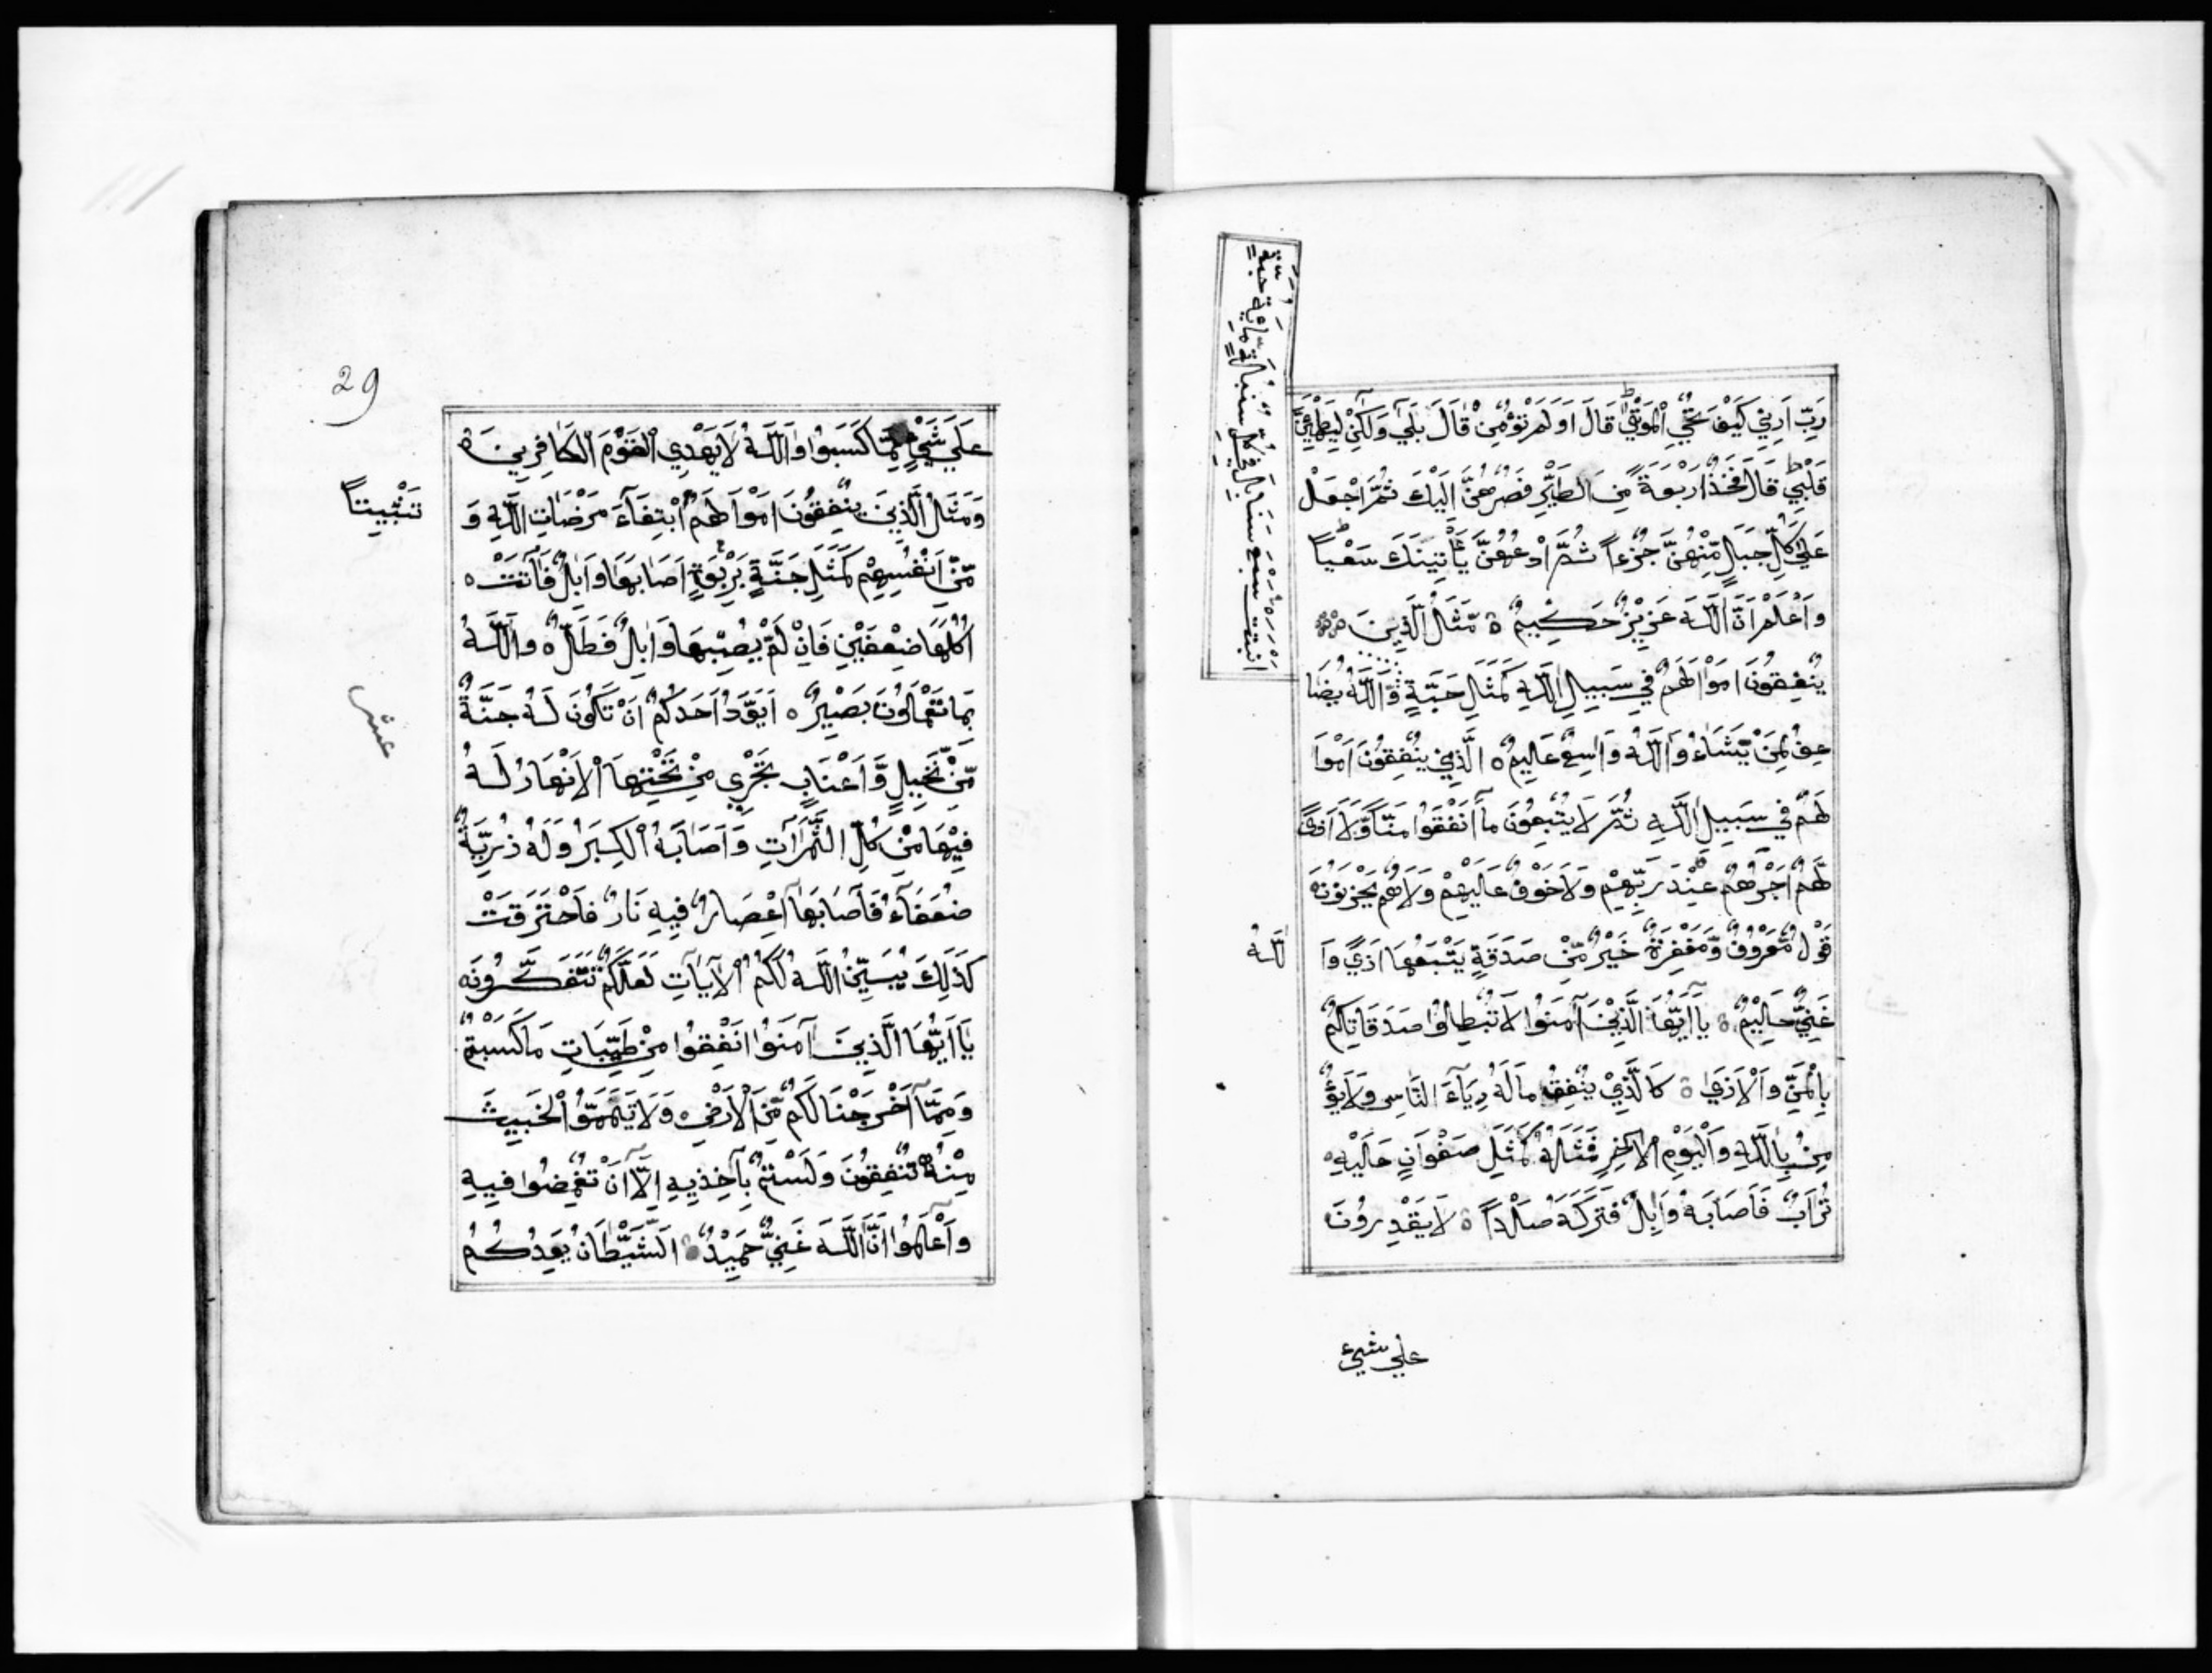 رَبِّ اَرِنِي كَيْفَ تُحْيِ الْمَوْتٰي قَالَ اَوَلَمْ تُؤْمِنْ قَالَ بَلَي وَلَكِنْ لِيَطْمَئِنَّ
قَلْبِي قَالَ فَخُذْ اَرْبَعَةً مِنَ الطَّيْرِ فَصُرْهُنَّ اِلَيْكَ ثُمَّ اجْعَلْ
عَلٰي كُلِّ جَبَلٍ مِّنْهُنَّ جُزْءاً ثُمَّ ادْعُهُنَّ يَأْتِينَكَ سَعْياً
وَاعْلَمْ اَنَّ اللَّهَ عَزِيزٌ حَكِيمٌ ة مَّثَلُ الَّذِينَ
يُنْفِقُونَ اَمْوَالَهُمْ فِي سَبِيلِ اللَّهِ كَمَثَلِ حَبَّةٍ وَاللَّهُ يُضَا
اَنْبَتَتْ سَبْعَ سَنَابِلَ فِي كُلِّ سُنْبُلَةٍ مِّايَةُ حَبَّةٍ
عِفُ لِمَنْ يَّشَاءُ وَاللَّهُ وَاسِعٌ عَلِيمٌ ه الَّذِينَ يُنْفِقُونَ اَمْوَا
لَهُمْ فِي سَبِيلِ اللَّهِ ثُمَّ لَا يُتْبِعُونَ مَا اَنْفَقُوا مَنّاً وَّلَا اَذيً
لَّهُمْ اَجْرُهُمْ عِنْدَ رَبِّهِمْ وَلَا خَوْفٌ عَلَيْهِمْ وَلَا هُمْ يَحْزَنُونَ ه
قَوْلٌ مَّعْرُوفٌ وَّمَغْفِرَةٌ خَيْرٌ مِّنْ صَدَقَةٍ يَتْبَعُهَا اَذيً وَا
للَّهُ
غَنِيٌّ حَلِيمٌ ة يَا اَيُّهَا الَّذِينَ آمَنُوا لَا تُبْطِلُوا صَدَقَاتِكُمْ
بِالْمَنِّ وَالْاَذَي ة كَالَّذِيْ يُنْفِقُ مَالَهُ رِيَآءَ النَّاسِ وَلَا يُؤْ
مِنُ بِاللَّهِ وَالْيَوْمِ الْآخِرِ فَمَثَلُهُ كَمَثَلِ صَفْوَانٍ عَلَيْهِ ه
تُرَابٌ فَاَصَابَهُ وَابِلٌ فَتَرَكَهُ صَلْداً ة لَا يَقْدِرُونَ
علي شيء
29
عَلَي شَيْءٍ مِّمَّا كَسَبُوا وَاللَّهُ لَا يَهْدِي الْقَوْمَ الْكَافِرِينَ ة
وَمَثَلُ الَّذِينَ يُنْفِقُونَ اَمْوَالَهُمُ ابْتِغَآءَ مَرْضَاتِ اللَّهِ وَ
تَثْبِيتاً
مِّنْ اَنْفُسِهِمْ كَمَثَلِ جَنَّةٍ بِرَبْوَةٍ اَصَابَهَا وَابِلٌ فَآتَتْ ه
اُكُلَهَا ضِعْفَيْنِ فَاِنْ لَمْ يُصِبْهَا وَابِلٌ فَطَلٌّ ه وَاللَّهُ
بِمَا تَعْمَلُونَ بَصِيْرٌ ه اَيَوَدُّ اَحَدُكُمْ اَنْ تَكُونَ لَهُ جَنَّةٌ
عشر
مِّنْ نَّخِيلٍ وَّاَعْنَابٍ تَجْرِي مِنْ تَحْتِهَا الْاَنْهَارُ لَهُ
فِيْهَا مِنْ كُلِّ الثَّمَرَاتِ وَاَصَابَهُ الْكِبَرُ وَلَهُ ذُرِّيَّةٌ
ضُعَفَآءُ فَاَصَابَهَا اِعْصَارٌ فِيهِ نَارٌ فَاحْتَرَقَتْ
كَذَلِكَ يُبَيِّنُ اللَّهُ لَكُمُ الْآيَاتِ لَعَلَّكُمْ تَتَفَكَّرُونَ ه
يَا اَيُّهَا الَّذِينَ آمَنُوا اَنْفِقُوا مِنْ طَيِّبَاتِ مَا كَسَبْتُمْ
وَمِمَّا اَخْرَجْنَا لَكُمْ مِّنَ الْاَرْضِ ه وَلَا تَيَمَّمُوا الْخَبِيثَ
مِنْهُ تُنْفِقُونَ وَلَسْتُمْ بِآخِذِيهِ اِلَّا اَنْ تُغْمِضُوا فِيهِ
وَاعْلَمُوا اَنَّ اللَّهَ غَنِيٌّ حَمِيْدٌ ه اَلشَّيْطَانُ يَعِدُكُمُ